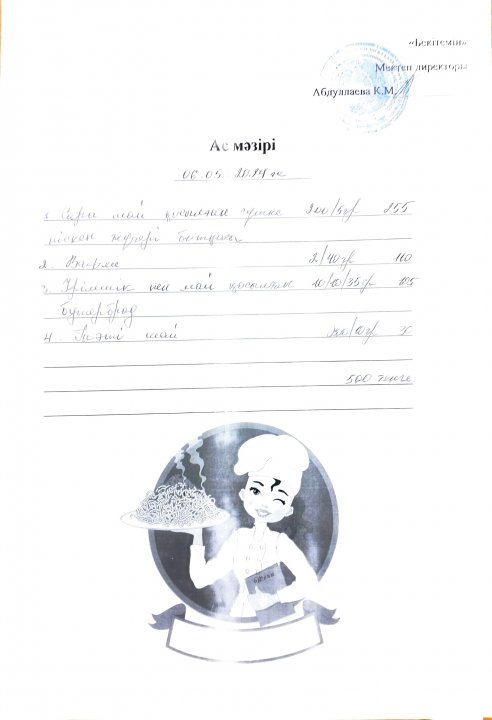 «Бекітемін»
Мектеп директоры
Абдуллаева К.М.
Ас мәзірі
06.05.2024 ж
1. Сары май қосылған 200/5гр 255
піскен жүгері ботқасы
2. 2/40гр 110
3. Ірімшік пен май қосылған 10/10/35гр 105
бутерброд
4. Тәтті шай
500 тенге